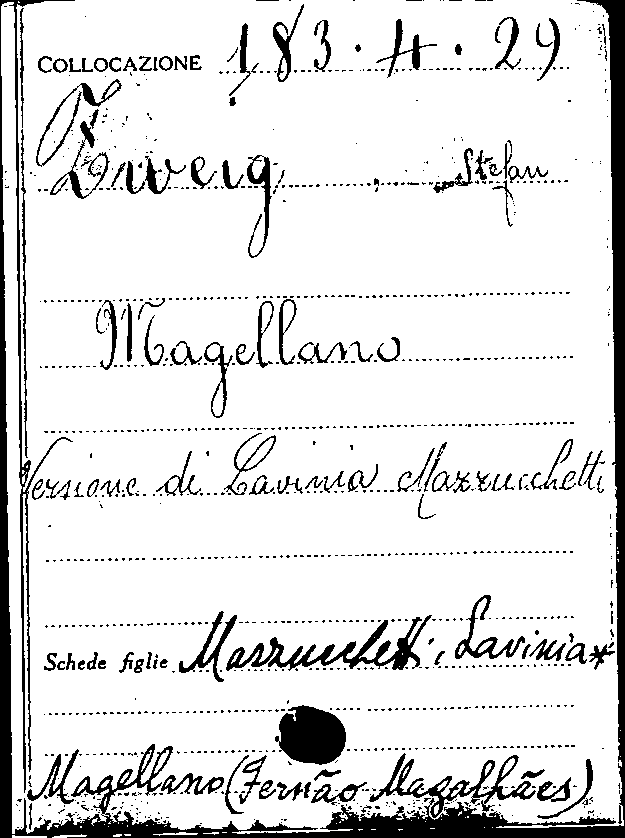 COLLOCAZIONE 183.4.29
Zweig, Stefan
Magellano
Versione di Lavinia Mazzucchetti
Schede figlie Mazzucchetti, Lavinia*
Magellano (Fernão Magalhães)